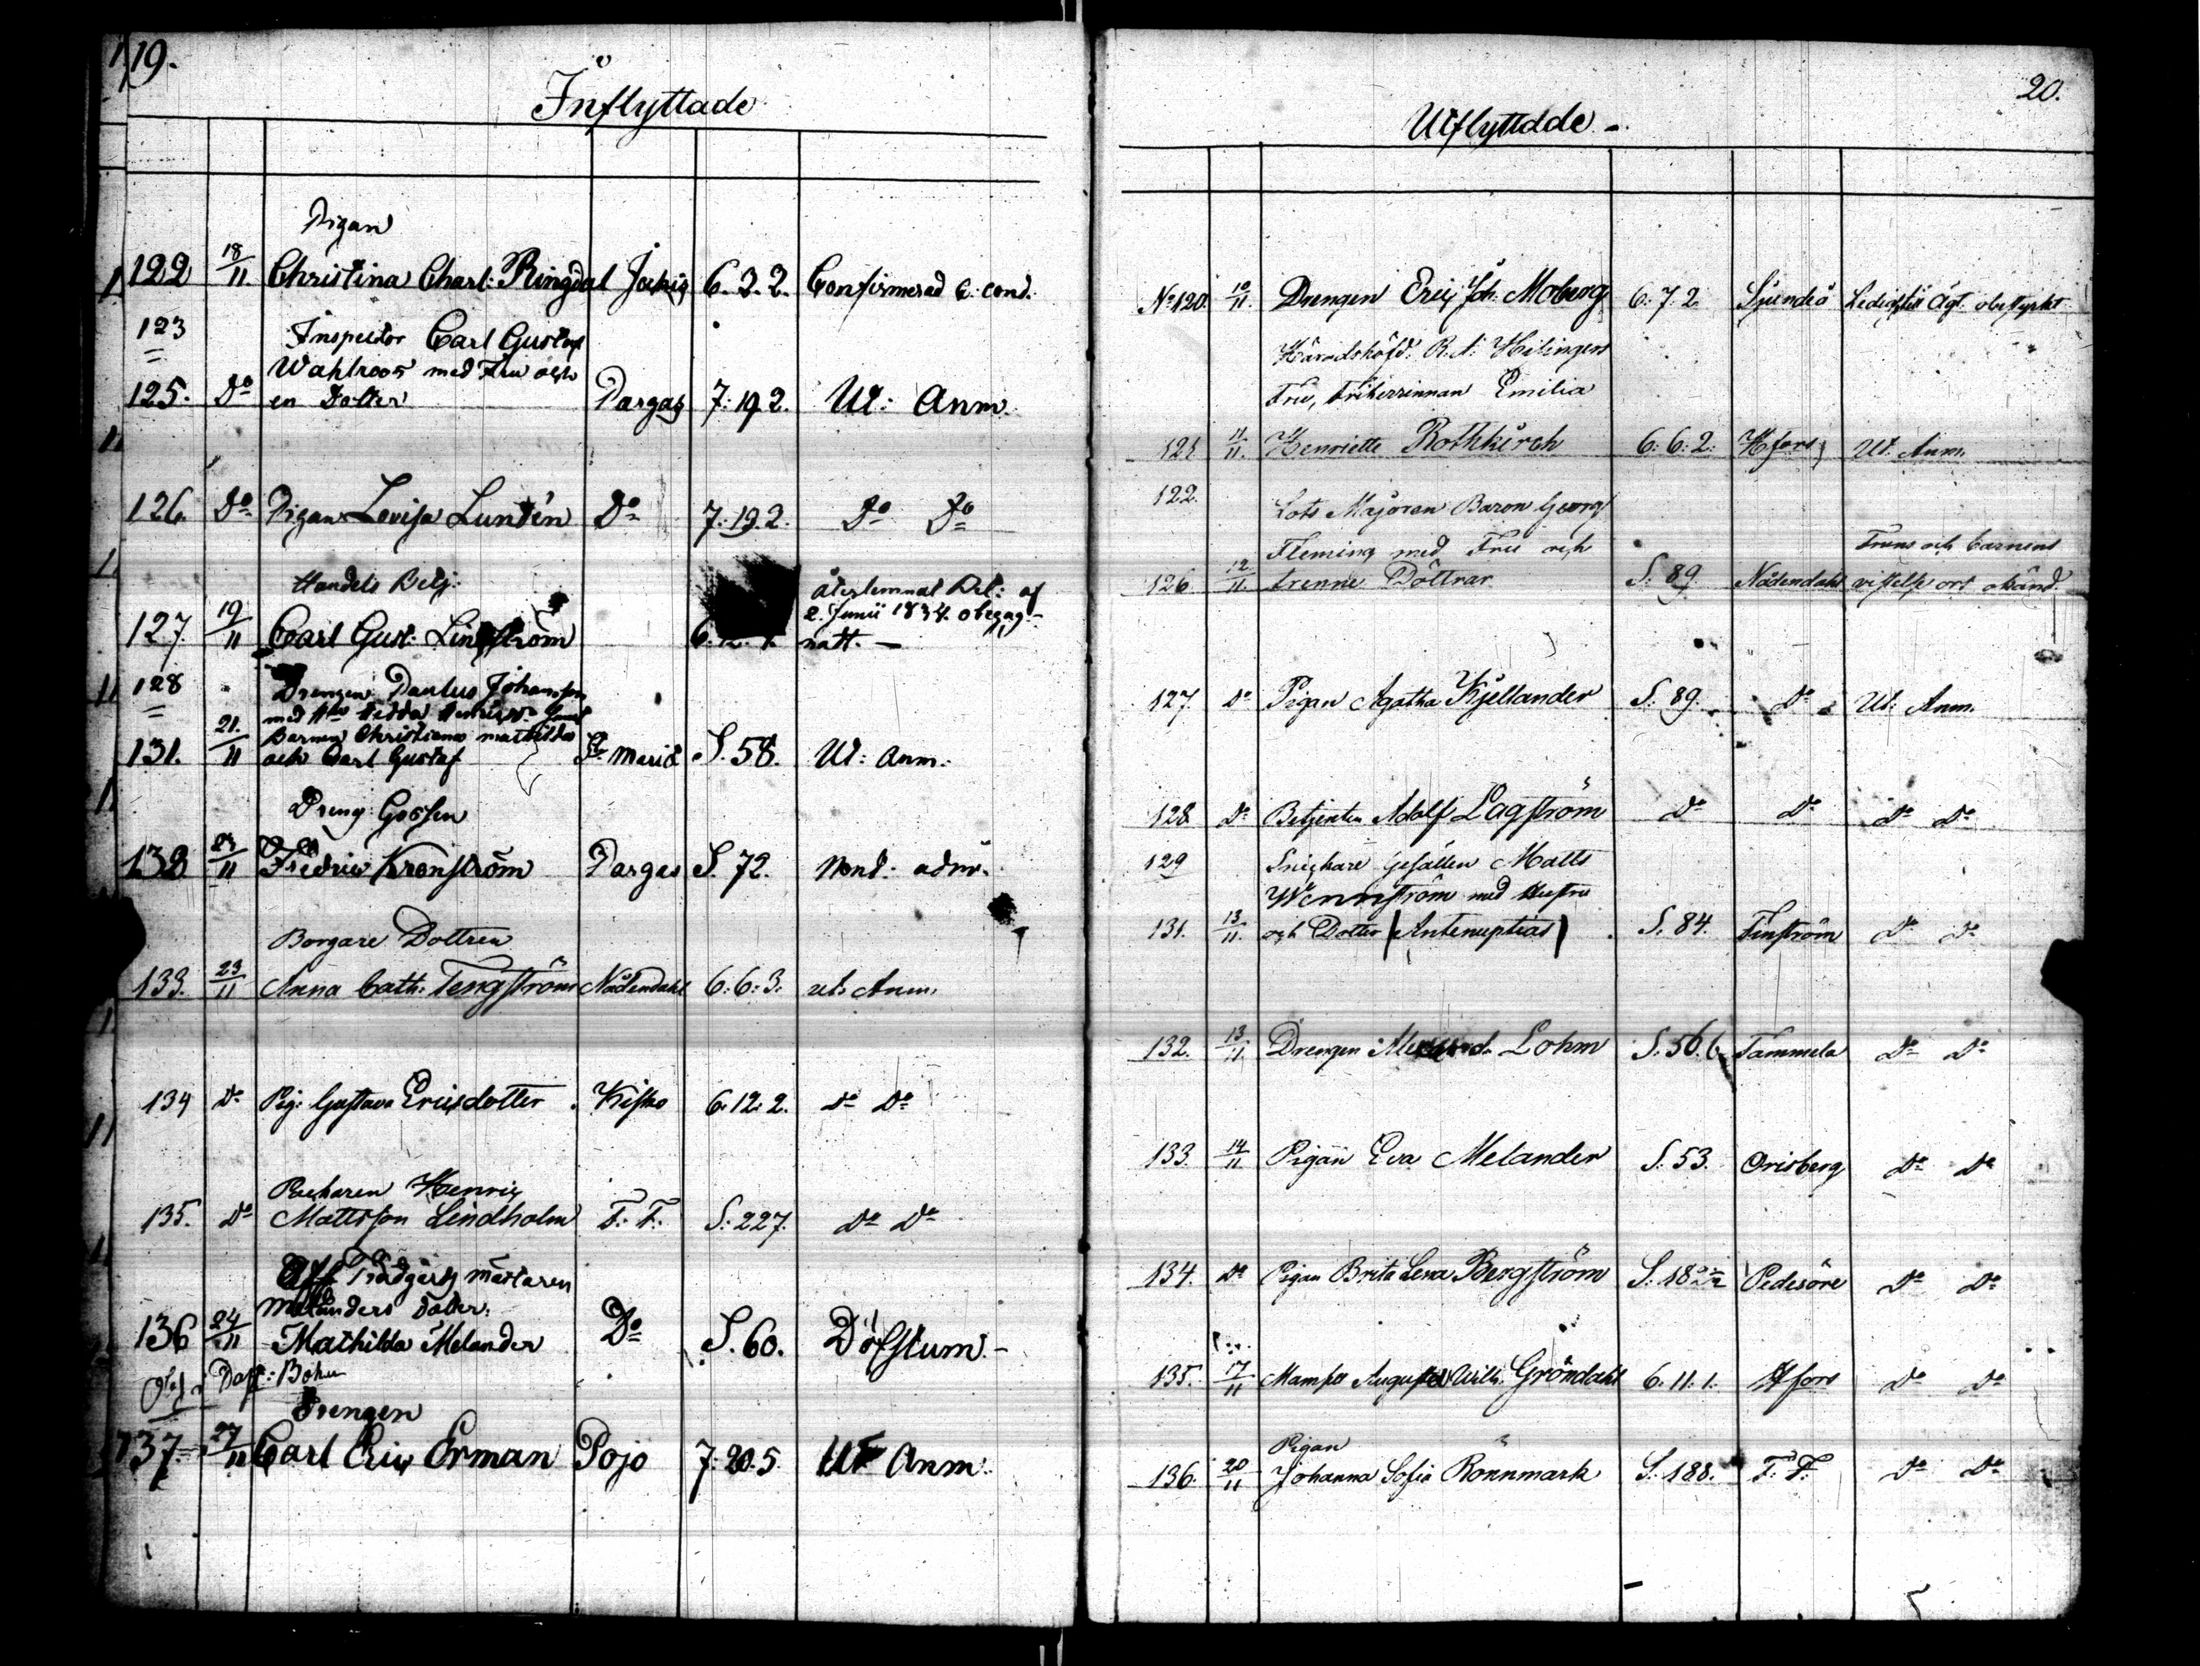 19.
Inflyttade
Pigan
122 18/11 Christina Charl: Ringdal 6.3.2. Confirmerad C: cond.
123 Inspector Carl Gustaf
Wahlroos med Fru och
125. Do en Dotter Pargas 7:19.2. Ut: Anm.
126. Do Pigan Lovisa Lundén Do 7.19.2. Do Do
Handels Betj:
återlemnat Bet: af
2. Junii 1834. obegag-
127. 19/11 Carl Gust: natt. —
128 Drengen Paulus Johansson
med Hu Hedda
Barnen Christiana Mathilda
131. 21/11 och Carl Gustaf St Mariæ S. 58. Ut: Anm:
Dreng Gossen
132 23/11 Fredric Kronström Pargas S. 72. Nond: adm.
Borgare Dottren
133. 23/11 Anna Cath: Tengström Nådendahl 6:6:3. ut. Anm.
134 Do Pig: Gustava Ericsdotter Kisko 6.12.2. Do Do
Henric
135. Do Mattsson Lindholm F: F: S: 227. Do Do
Trädgårds mästaren
Melanders Dotter:
136 24/11 Mathilda Melander Do S. 60. Döfstum.-
Drengen
137 27/11 Carl Eric Erman Pojo 7.20.5. Ut Anm.
20.
Utflyttade -
No 120. 10/11 Drengen Eric Joh: Moberg 6.7.2. Sjundeå
Häradshöfd: R. A: Hisingers
Fru, Friherrinnan Emilia
121. 11/11 Henriette Rothkirch 6:6:2: Hfors Ut. Anm.
122. Lots Majoren Baron Georg
Fleming med Fru och Fruns och barnens
126 12/11 trenne Döttrar S. 89. Nådendahl vistelse ort okänd.
127. Do Pigan Agatha Kjellander S. 89. Do Ut: Anm.
128. Do Betjenten Adolf Lagström Do Do Do Do
129 Snickare Gesällen Matts
Wennström med Hustru
131. 13/11 och Dotter (Antenuptias) S. 84. Finström Do Do
132. 13/11 Drengen Lohm S. 56. Tammela Do Do
133. 14/11 Pigan Eva Melander S. 53. Orisberg Do Do
134. Do Pigan Brita Lena Bergström Pedersöre Do Do
135. 17/11 Mamsll Augusta Wilh: Gröndahl 6.11.1. Hfors Do Do
Pigan
136. 20/11 Johanna Sofia Rönnmark S. 188. F: F. Do Do